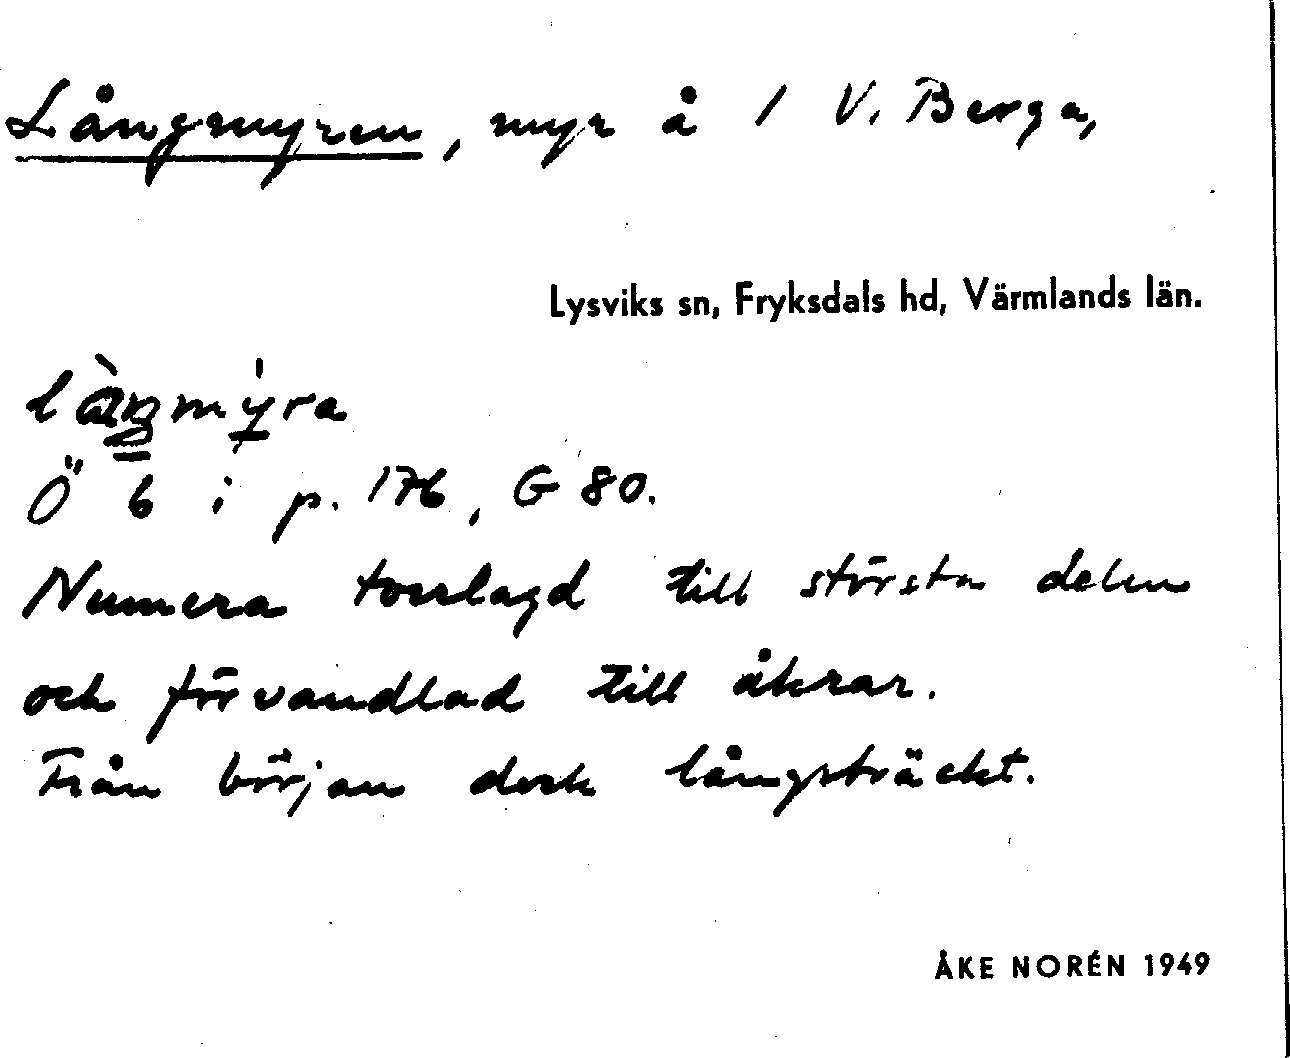 Långmyren, myr å 1 V. Berga,
Lysviks sn, Fryksdals hd, Värmlands län.
làŋmy̍ra
Ö 6 i p. 176, G 80.
Numera torrlagd till största delen
och förvandlad till åkrar.
Från början dock långsträckt.
ÅKE NORÉN 1949